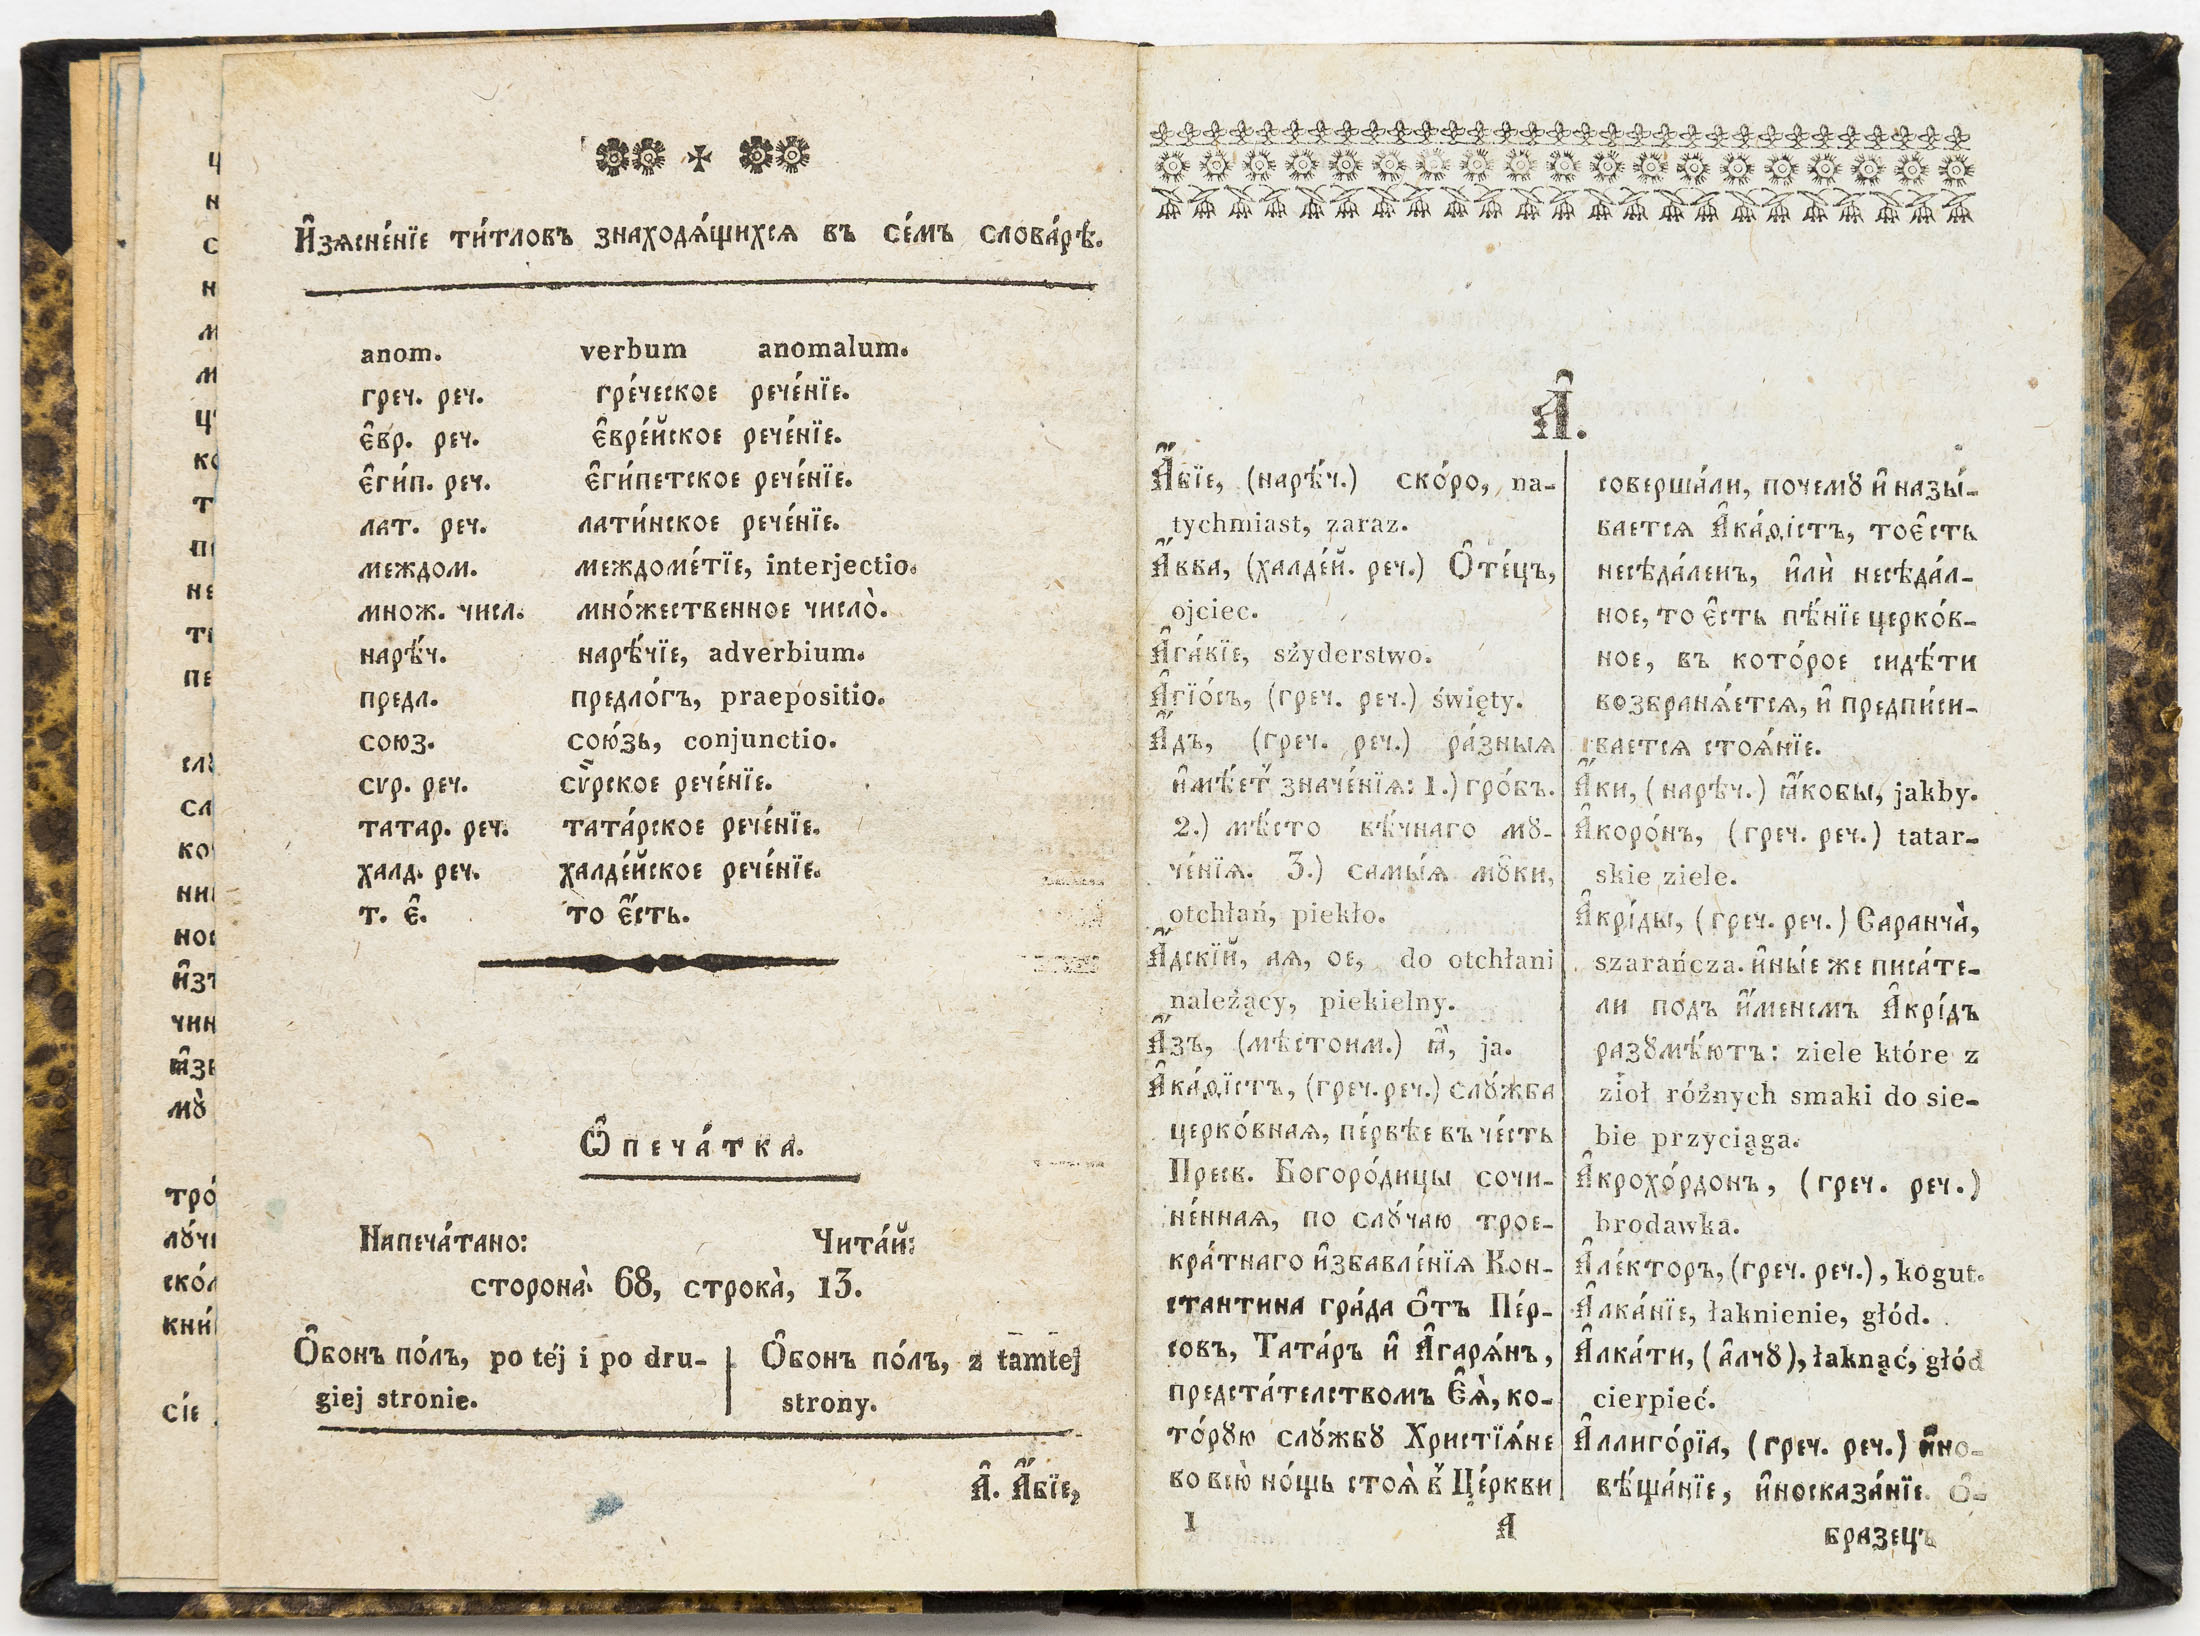 И҆зѧсне́нїе ти́тловъ знаходѧ́щихсѧ въ се́мъ слова́рѣ.
anom. verbum anomalum.
греч. реч. гре́ческое рече́нїе.
є҆вр. реч. є҆вре́йское рече́нїе.
є҆ги́п. реч. є҆ги́петское рече́нїе.
лат. реч. лати́нское рече́нїе.
междом. междоме́тїе, interjectio.
множ. числ. мно́жественное число̀.
нарѣ́ч. нарѣ́чїе, adverbium.
предл. предло́гъ, praepositio.
союз. сою́зъ, conjunctio.
сѵр. реч. сѵ́рское рече́нїе.
татар. реч. тата́рское рече́нїе.
халд. реч. халде́йское рече́нїе.
т. є҆. то є҆́сть.
Ѽпеча́тка.
Напеча́тано: Чита́й:
сторона̀ 68, строка̀, 13.
О҆бонъ по́лъ, po téj i po dru-
giej stronie.
О҆бонъ по́лъ, z tamtej
strony.
А҆. А҆́бїе,
А҆.
А҆́бїе, (нарѣ́ч.) ско́ро, na-
tychmiast, zaraz.
А҆́вва, (халде́й. реч.) О҆те́цъ,
ojciec.
А҆га́кїе, sżyderstwo.
А҆гїо́съ, (греч. реч.) święty.
А҆́дъ, (греч. реч.) ра́зныѧ
и҆мѣ́етъ значе́нїѧ: 1.) гро́бъ.
2.) мѣ́сто вѣ́чнаго мꙋ-
че́нїѧ. 3.) самы́ѧ мꙋ́ки,
otchłań, piekło.
А҆́дскїй, аѧ, ое, do otchłani
należący, piekielny.
А҆́зъ, (мѣстоим.) ꙗ҆̀, ja.
А҆ка́ѳїстъ, (греч. реч.) слꙋ́жба
церко́внаѧ, пе́рвѣе въ че́сть
Пресв. Богоро́дицы сочи-
не́ннаѧ, по слꙋ́чаю трое-
кра́тнаго и҆збавле́нїѧ Кон-
стантина гра́да ѻ҆тъ Пе́р-
совъ, Тата́ръ и҆ А҆гарѧ́нъ,
предста́телствомъ Є҆ѧ̀, ко-
то́рꙋю слꙋ́жбꙋ Христїѧ́не
во всю̀ но́щь стоѧ̀ в̾ Це́ркви
1 А
совершáли, почемꙋ и҆ назы́-
ваетсѧ А҆ка́ѳістъ, тоє҆сть
несѣда́ленъ, и҆лѝ несѣда́л-
ное, то є҆сть пѣ́нїе церко́в-
ное, въ кото́рое сидѣ́ти
возбранѧ́етсѧ, и҆ предпи́си-
ваетсѧ стоѧ́нїе.
А҆́ки, (нарѣч.) ꙗ҆́ковы, jakby.
А҆коро́нъ, (греч. реч.) tatar-
skie ziele.
А҆кри́ды, (греч. реч.) Саранча̀,
szarańcza. и҆ны́е же писа́те-
ли подъ и҆́менемъ А҆крі́дъ
разꙋмѣ́ютъ: ziele które z
zioł różnych smaki do sie-
bie przyciąga.
А҆крохо́рдонъ, (греч. реч.)
brodawka.
А҆ле́кторъ, (греч. реч.), kogut.
А҆лка́нїе, łaknienie, głód.
А҆лка́ти, (а҆лчꙋ), łaknąć, głód
cierpieć.
А҆ллиго́рїа, (греч. реч.) и҆но-
вѣща́нїе, и҆носказа́нїе. о҆-
бразецъ